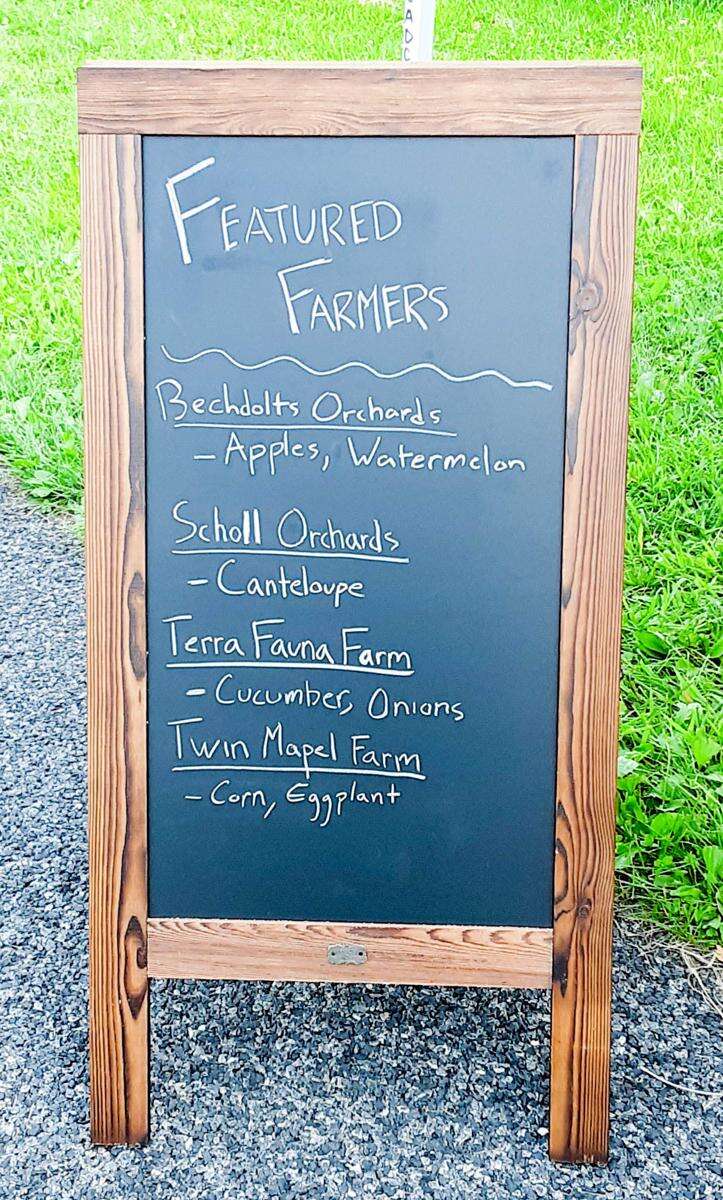 FEATURED
FARMERS
Bechdolts Orchards
- Apples, Watermelon
Scholl Orchards
- Canteloupe
Terra Fauna Farm
- Cucumber, Onions
Twin Mapel Farm
- Corn, Eggplant